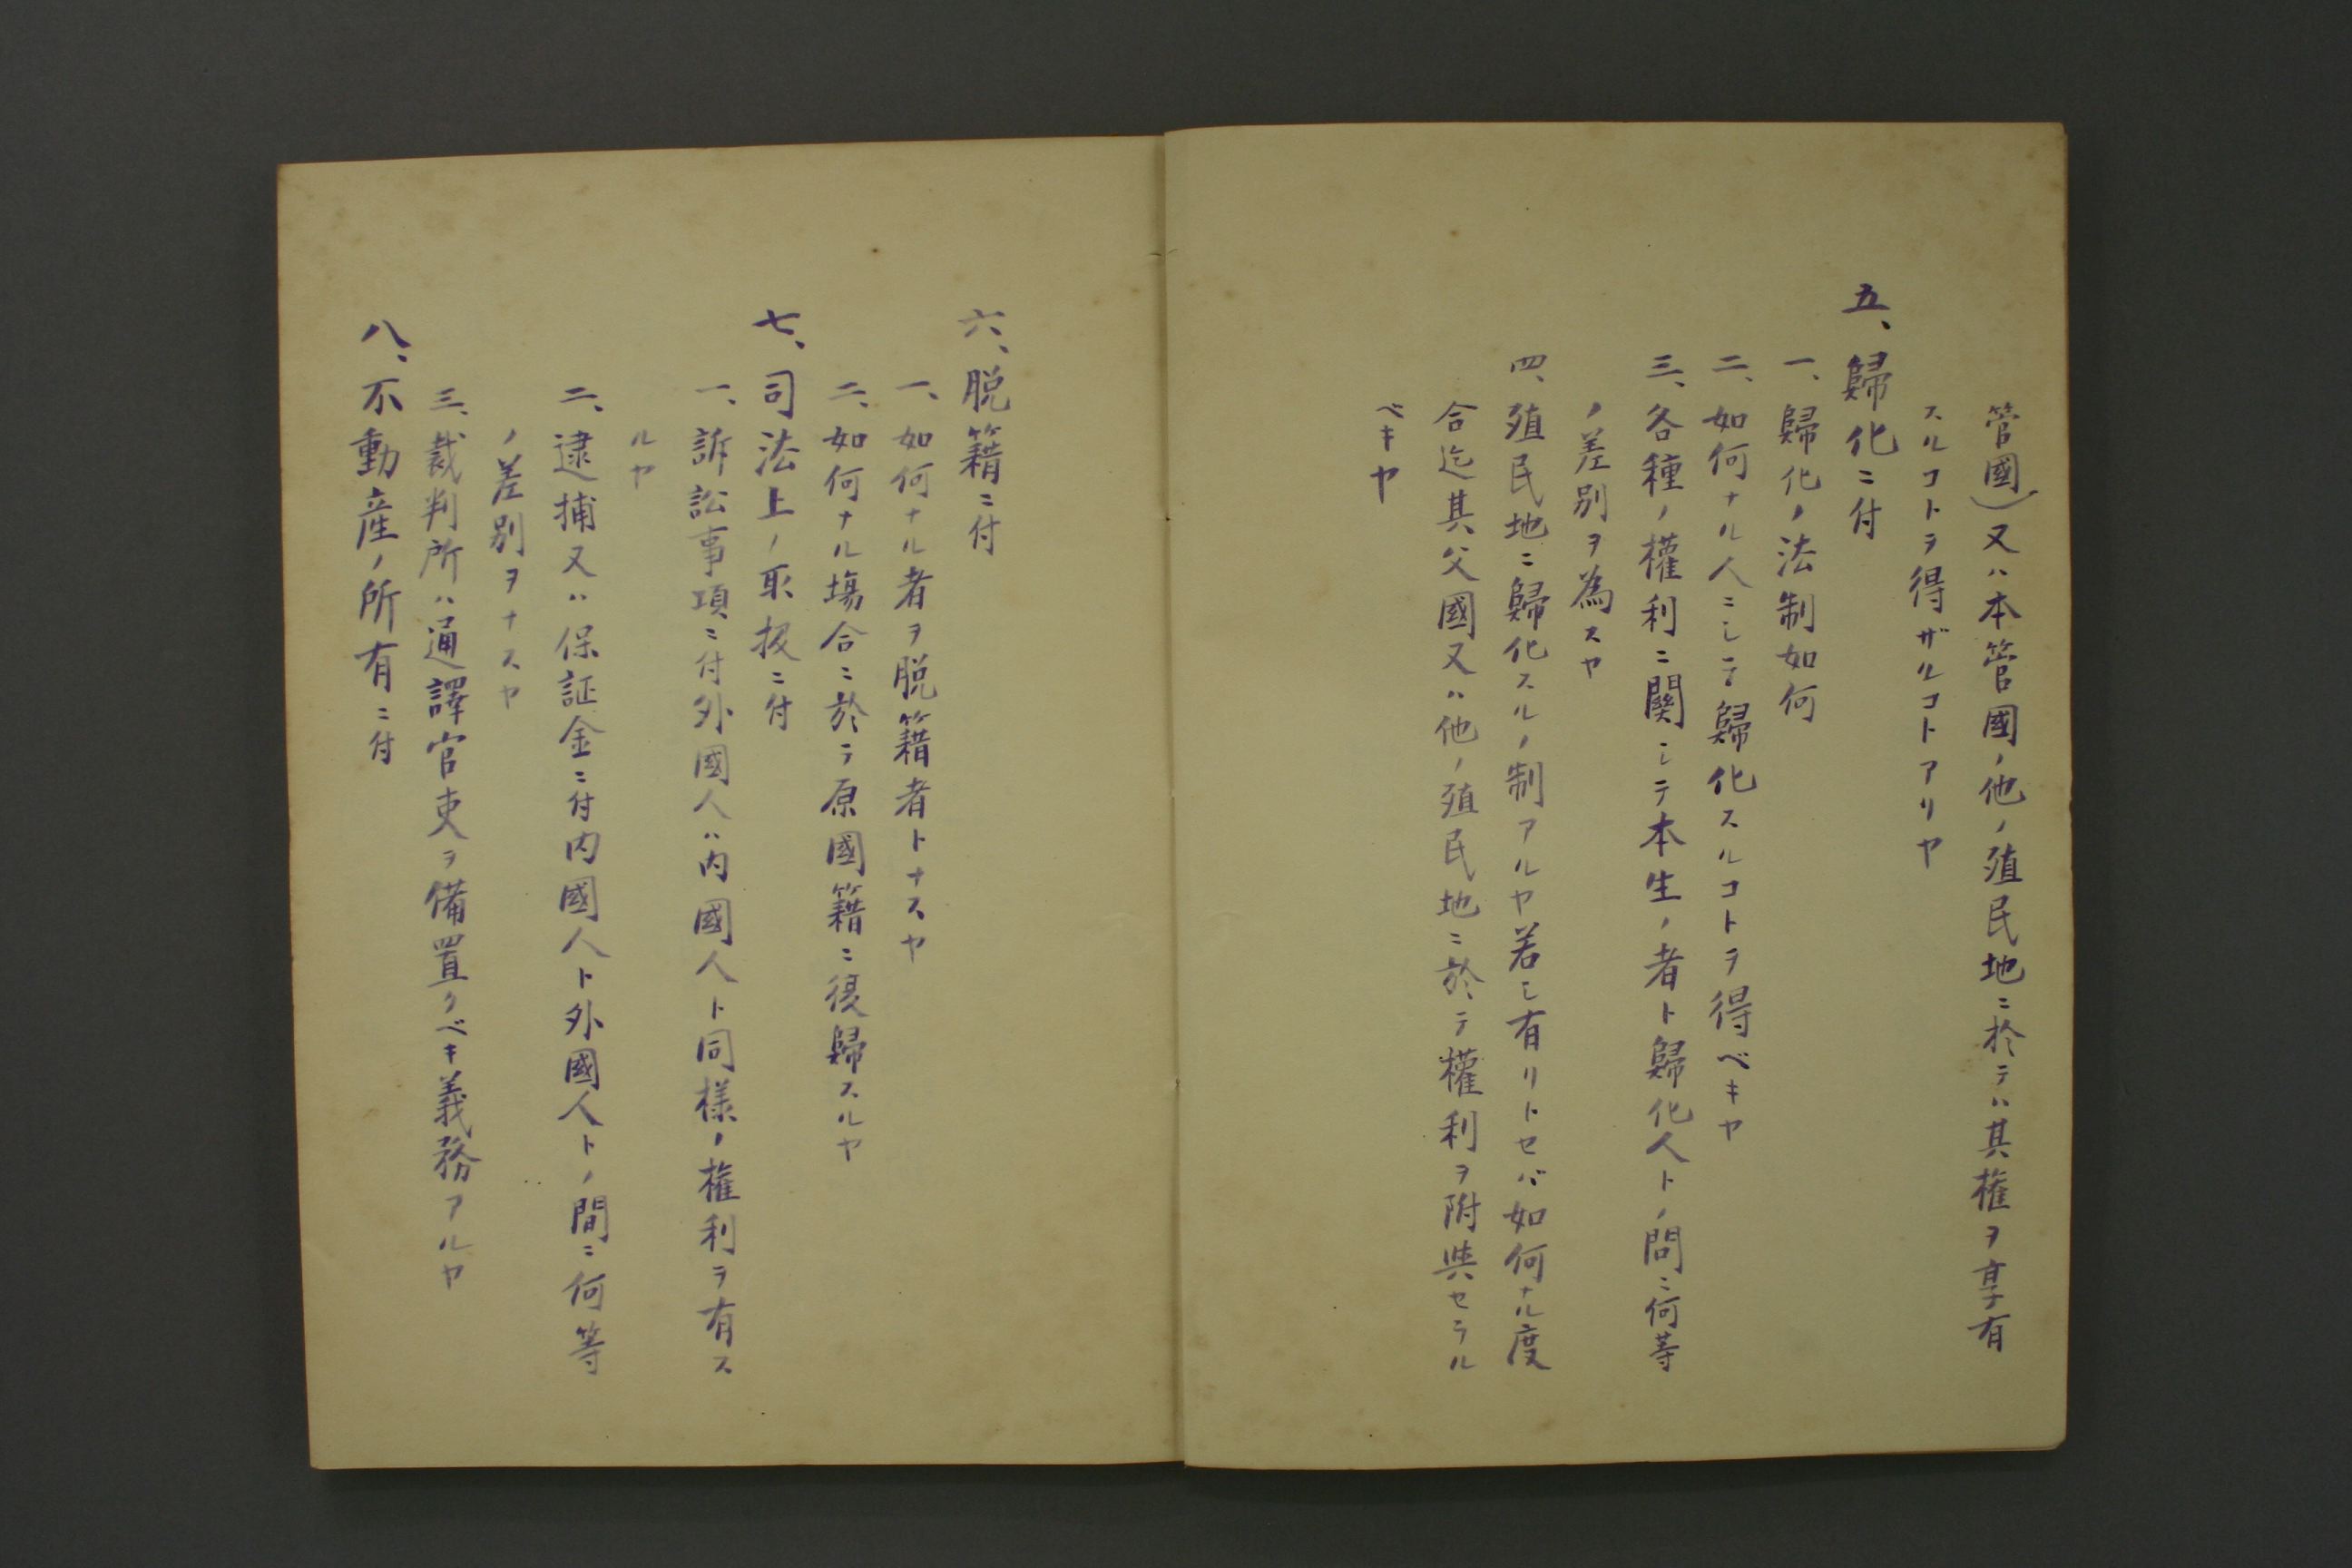 管國）又ハ本管國ノ他ノ殖民地ニ於テハ其権ヲ享有
スルコトヲ得ザルコトアリヤ
五、歸化ニ付
一、歸化ノ法制如何
二、如何ナル人ニシテ歸化スルコトヲ得ベキヤ
三、各種ノ權利ニ関シテ本生ノ者ト歸化人トノ間ニ何等
ノ差別ヲ為スヤ
四、殖民地ニ歸化スルノ制アルヤ若シ有リトセバ如何ナル度
合迄其父國又ハ他ノ殖民地ニ於テ權利ヲ附與セラル
ベキヤ
六、脱籍ニ付
一、如何ナル者ヲ脱籍者トナスヤ
二、如何ナル場合ニ於テ原國籍ニ復歸スルヤ
七、司法上ノ取扱ニ付
一、訴訟事項ニ付外國人ハ内國人ト同様ノ権利ヲ有ス
ルヤ
二、逮捕又ハ保証金ニ付内國人ト外國人トノ間ニ何等
ノ差別ヲナスヤ
三、裁判所ハ通譯官吏ヲ備置クベキ義務アルヤ
八、不動産ノ所有ニ付